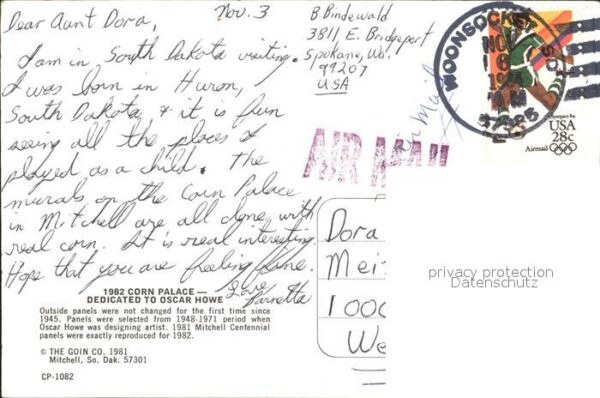 Dear Aunt Dora, Nov. 3
I am in, South Dakota visiting.
I was born in Huron,
South Dakota, & it is fun
seeing all the places I
played as a child. The
murals on the Corn Palace
in Mitchell are all done with
real corn. It is real interesting.
Hope that you are feeling fine.
Love
B Bindewald
3811 E. Bridgeport
Spokane, Wa.
99207
USA
Air Mail
AIR MAIL
WOONSOCKET
NO
16
19
AM
57385
USA
28c
Airmail
Dora
Mei
1000
We
privacy protection
Datenschutz
1982 CORN PALACE —
DEDICATED TO OSCAR HOWE
Outside panels were not changed for the first time since
1945. Panels were selected from 1948-1971 period when
Oscar Howe was designing artist. 1981 Mitchell Centennial
panels were exactly reproduced for 1982.
© THE GOIN CO. 1981
Mitchell, So. Dak. 57301
CP-1082